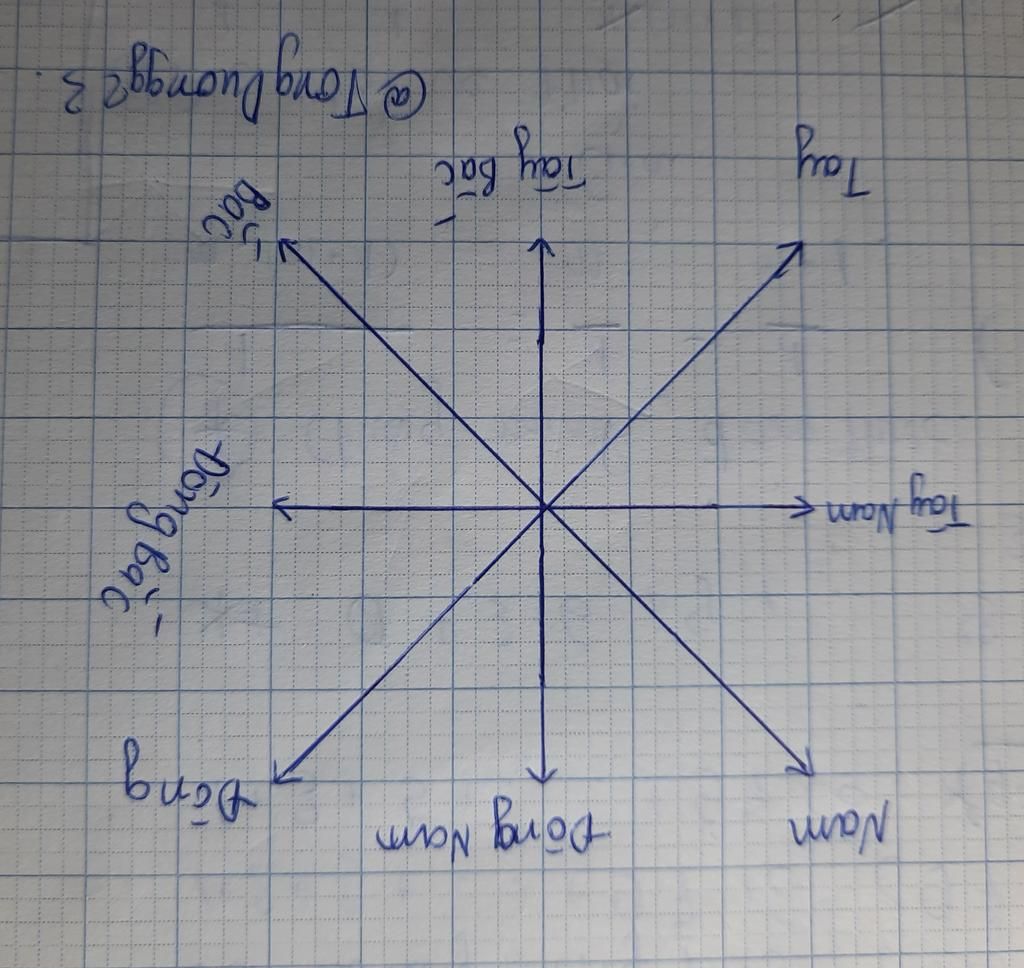 Nam
Đông Nam
Đông
Tây Nam
Đông Bắc
Tay
Tây Bắc
Bắc
@TongDuongg23.